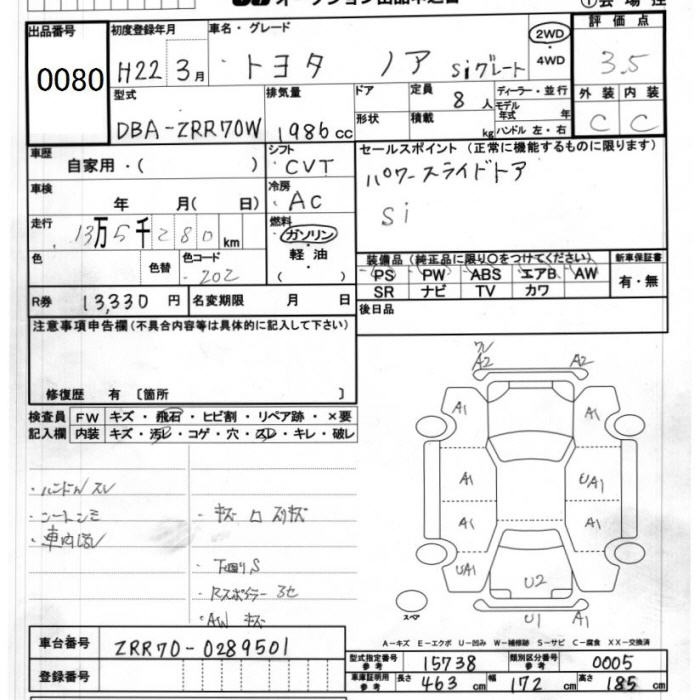 オークション出品申込書
①会場控
出品番号
0080
初度登録年月
H22 3月
車名・グレード
トヨタ ノア Siグレート
2WD・4WD
評価点
3.5
型式
DBA-ZRR70W
排気量
1986cc
ドア
形状
定員
8人
積載
kg
ディーラー・並行
モデル年式 年
ハンドル 左・右
外装 内装
C C
車歴
自家用・( )
シフト
CVT
セールスポイント (正常に機能するものに限ります)
パワースライドドア
Si
車検
年 月( 日)
冷房
AC
走行
13万5千280km
燃料
ガソリン
軽油
( )
色
色替
色コード
202
装備品 (純正品に限り○をつけてください)
PS PW ABS エアB AW
SR ナビ TV カワ
新車保証書
有・無
R券 13,330円
名変期限 月 日
後日品
注意事項申告欄(不具合内容等は具体的に記入して下さい)
修復歴 有 〔箇所 〕
検査員記入欄
FW キズ・飛石・ヒビ割・リペア跡・×要
内装 キズ・汚レ・コゲ・穴・スレ・キレ・破レ
・ハンドルスレ
・シートシミ
・キズ
・下回りS
・AWキズ
A2 A2
A1 A1
A1 UA1
A1 A1
UA1
U2
U1 A1
スペア
A-キズ E-エクボ U-凹み W-補修跡 S-サビ C-腐食 XX-交換済
車台番号
ZRR70-0289501
登録番号
型式指定番号 参考 15738
類別区分番号 参考 0005
車庫証明用 参考 長さ 463cm 幅 172cm 高さ 185cm